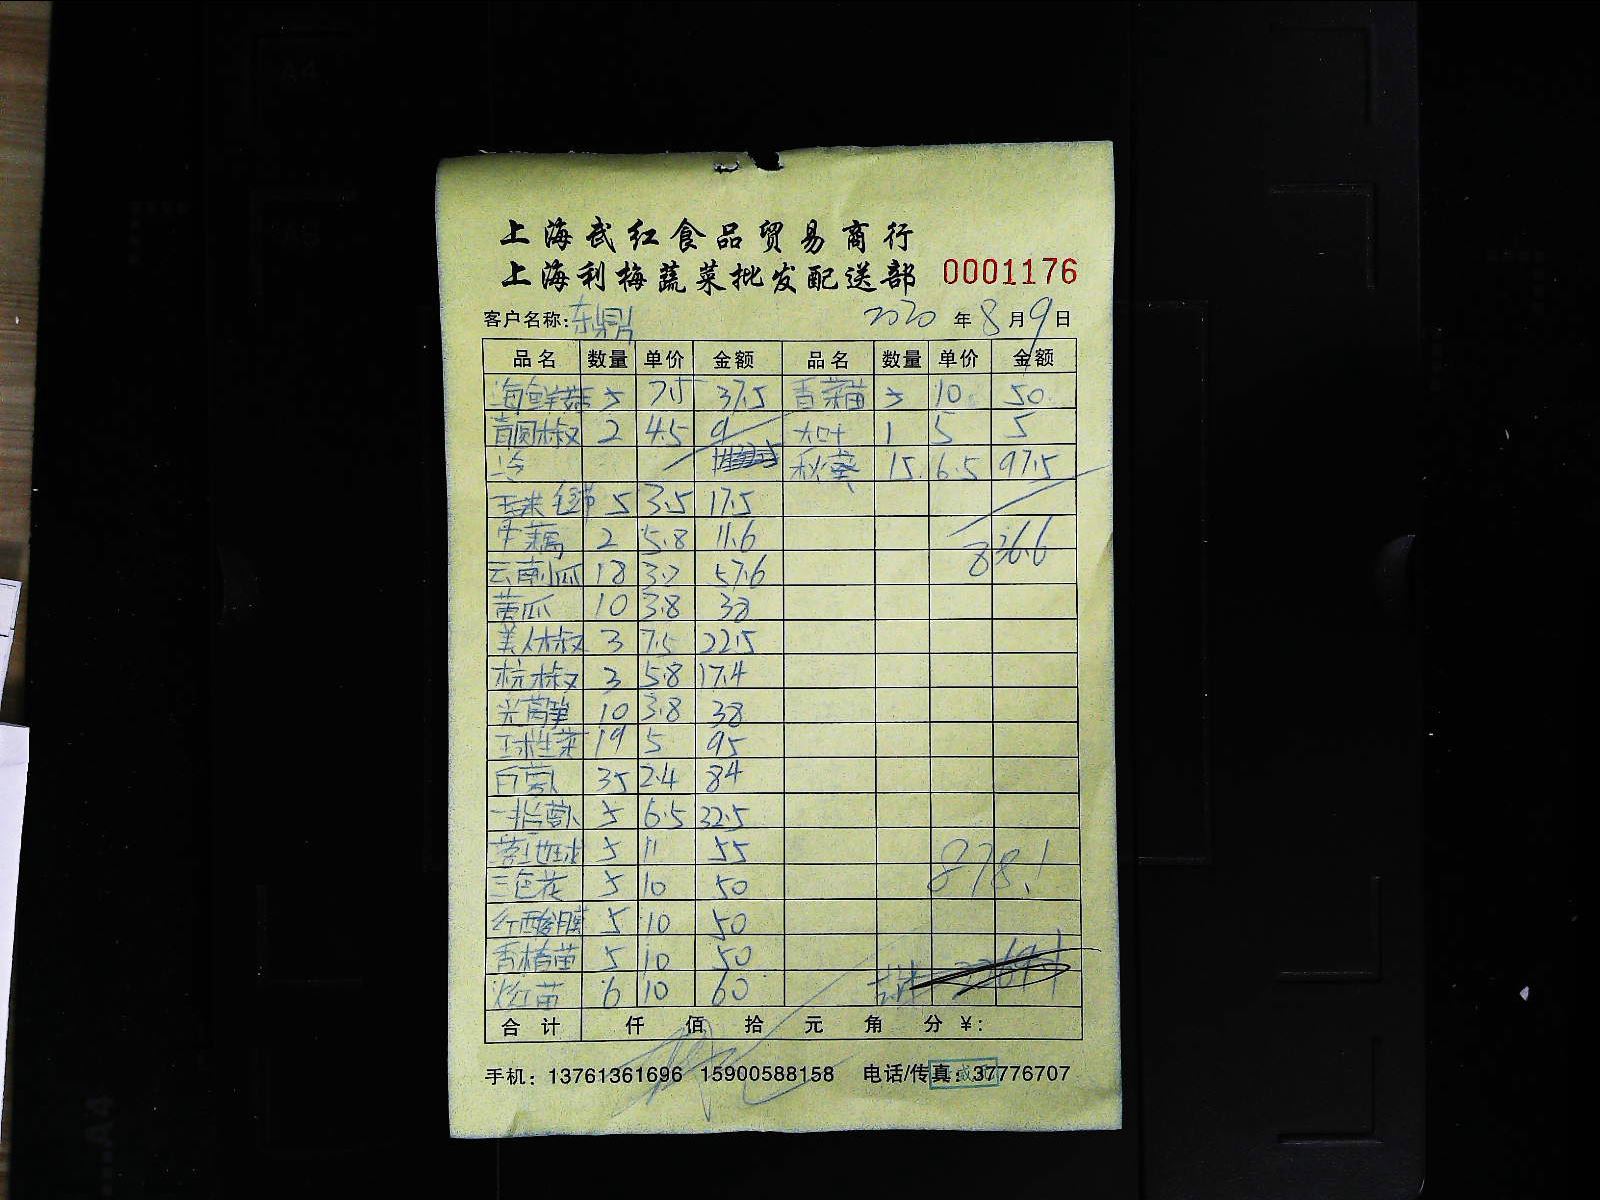 上海武红食品贸易商行
上海利梅蔬菜批发配送部 0001176
客户名称:东鼎 2020 年 8 月 9 日
品名 数量 单价 金额 品名 数量 单价 金额
海鲜菇 5 7.5 37.5 香菜苗 5 10 50
青圆椒 2 4.5 9 大叶 1 5 5
冷 秋葵 15 6.5 97.5
玉米 5 3.5 17.5
藕 2 5.8 11.6 836.6
云南瓜 18 3.2 57.6
黄瓜 10 3.8 38
美人椒 3 7.5 22.5
杭椒 3 5.8 17.4
光莴笋 10 3.8 38
球生菜 19 5 95
白萝卜 35 2.4 84
一指萝卜 5 6.5 32.5
球 5 11 55 878.1
三色花 5 10 50
红酸膜 5 10 50
香椿苗 5 10 50
红苗 6 10 60
合计 仟 佰 拾 元 角 分 ¥:
手机: 13761361696 15900588158 电话/传真: 37776707